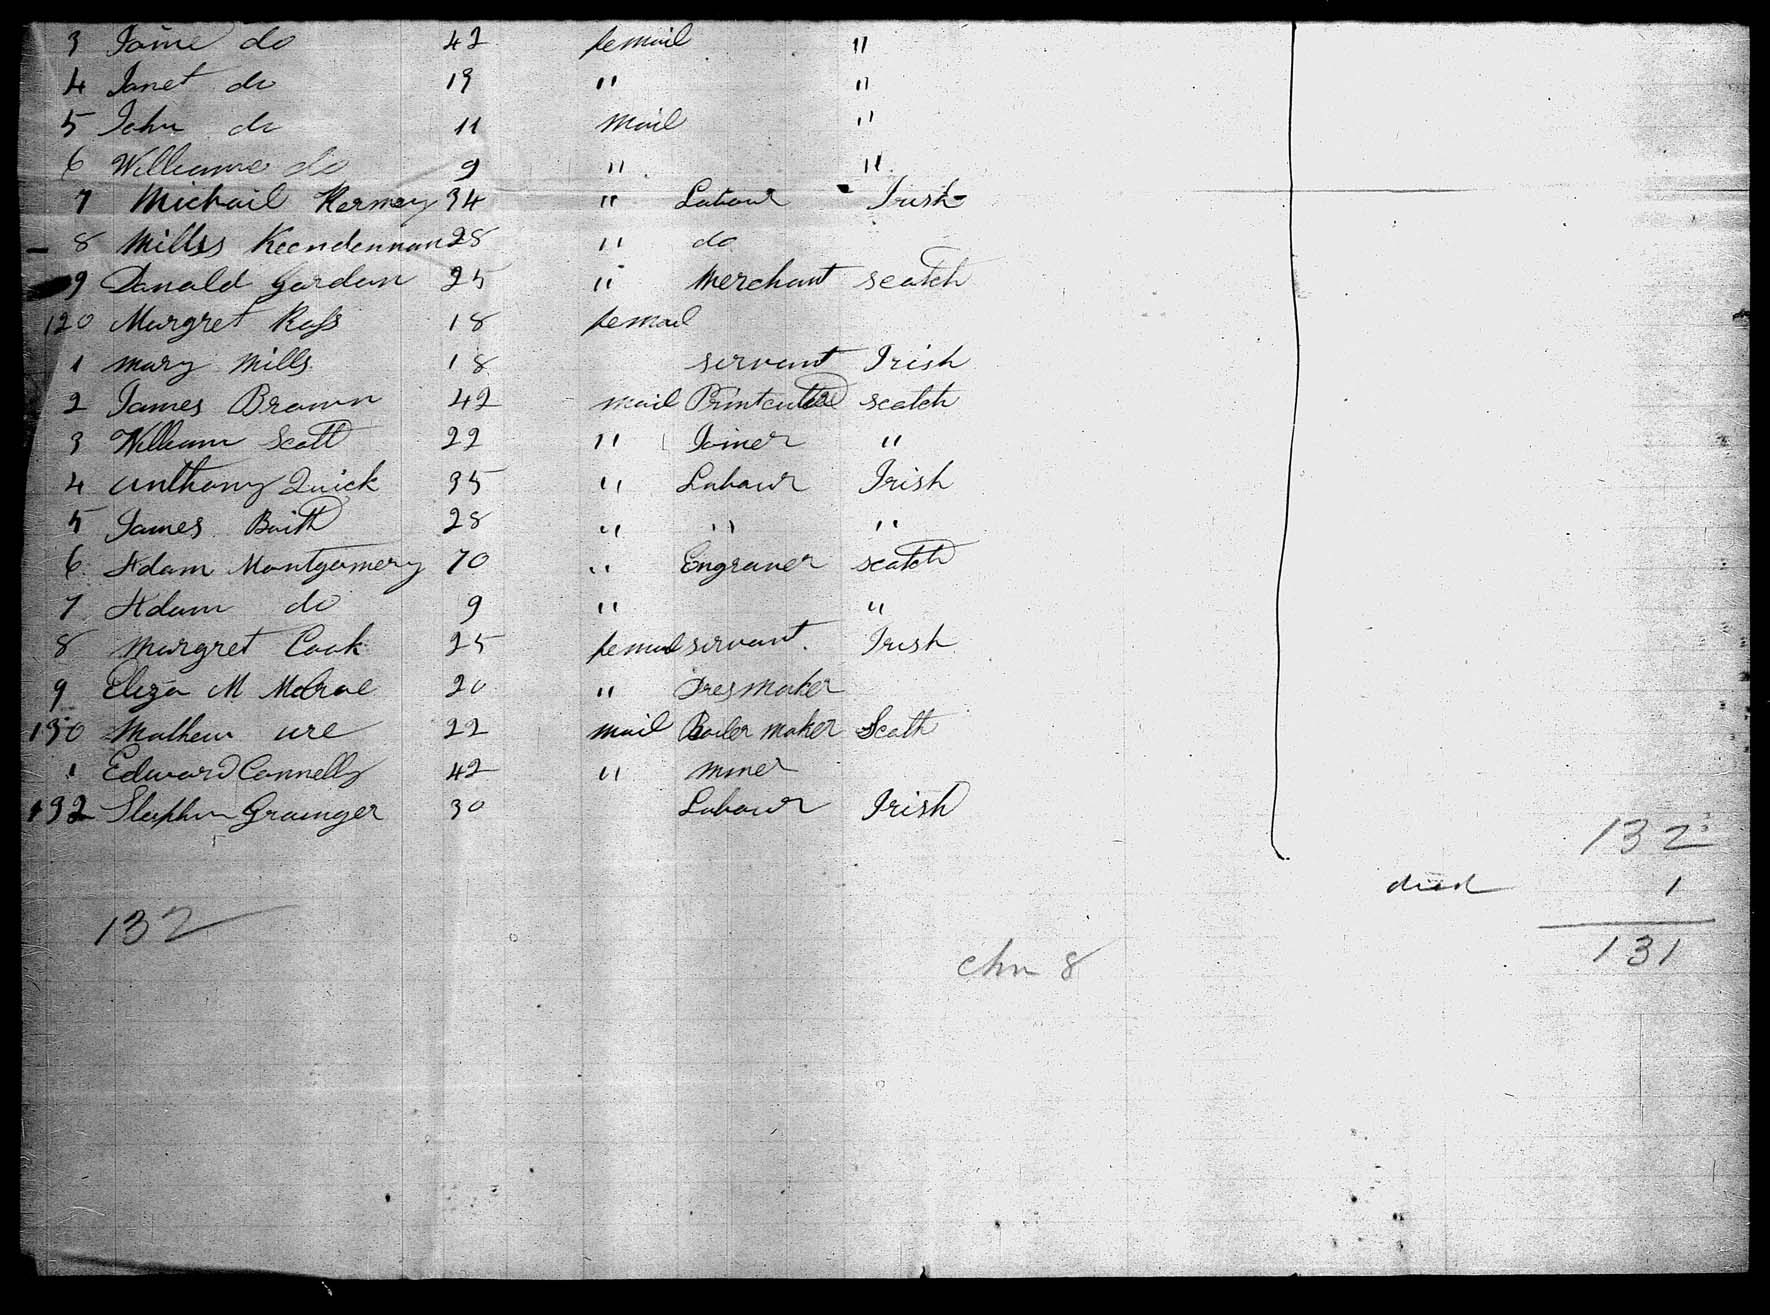 3 Jaine do 42 femail "
4 Janet do 13 " "
5 John do 11 mail "
6 Williame do 9 " "
7 Michail Kermey 34 " Labour - Irish -
8 Millss Keendennan 28 " do
9 Donald Gordon 25 " Merchant scotch
120 Margret Ross 18 femail
1 mary Mills 18 servant Irish
2 James Brown 42 mail Printcutter scotch
3 William Scott 22 " Joiner "
4 Anthony Quick 35 " Labour Irish
5 James Boith 28 " " "
6 Adam Montgomery 70 " Engraver scotch
7 Adam do 9 " "
8 Margret Cook 25 femail servant Irish
9 Eliza M 20 " Dresmaker
130 Mathew ure 22 mail Boiler Maker Scoth
1 Edward Connelly 42 " miner
132 Stephen Grainger 30 Labour Irish
132
died 1
132
131
chn 8